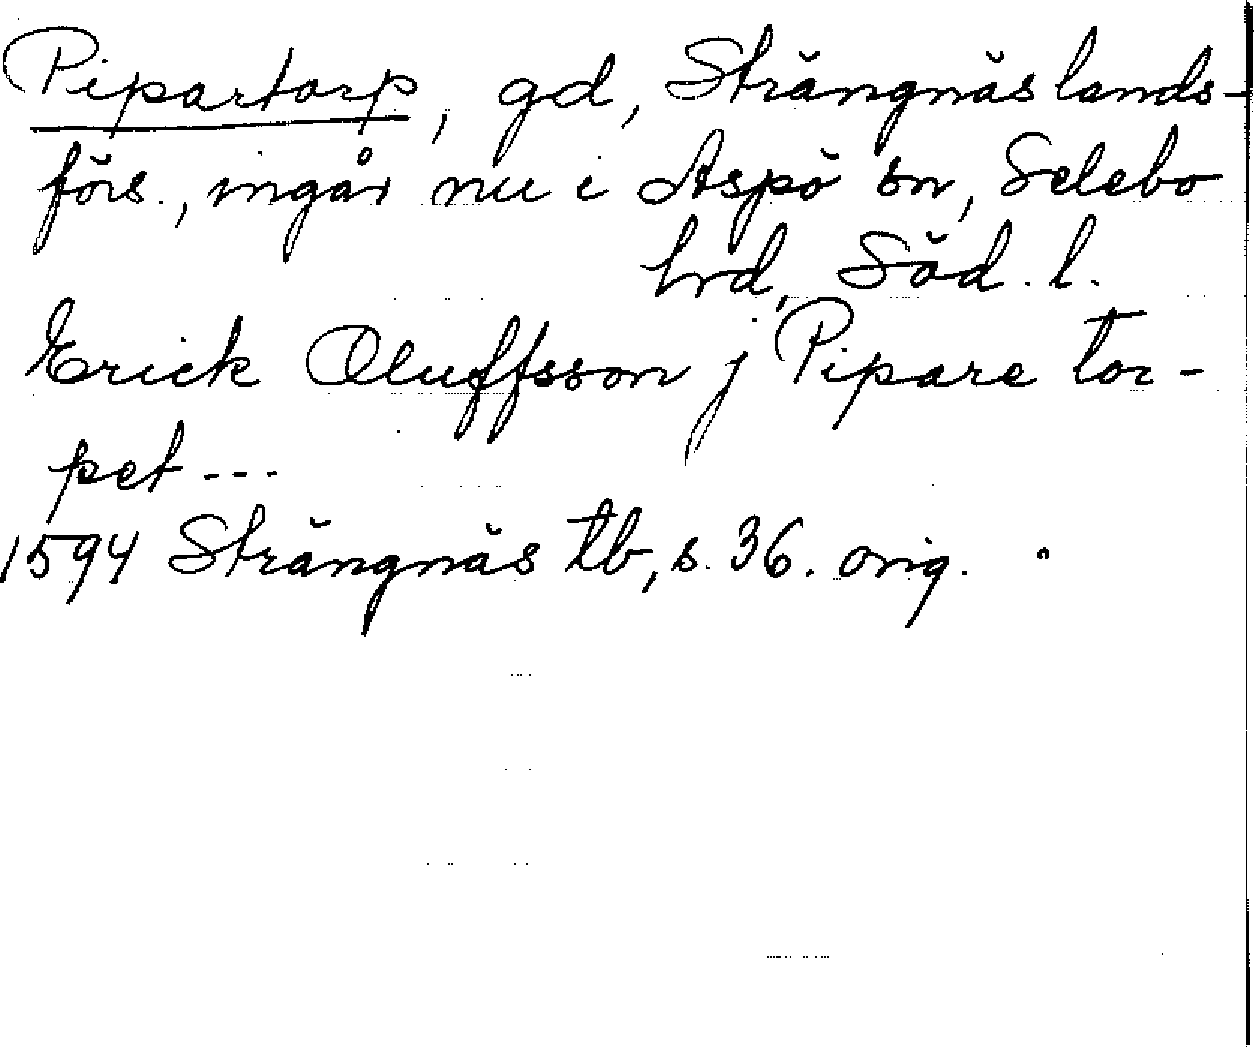 Pipartorp, gd, Strängnäs lands-
förs., ingår nu i Aspö sn, Selebo
hrd, Söd. l.
Erick Oluffsson j Pipare tor-
pet ---
1594 Strängnäs tb, s. 36. orig.